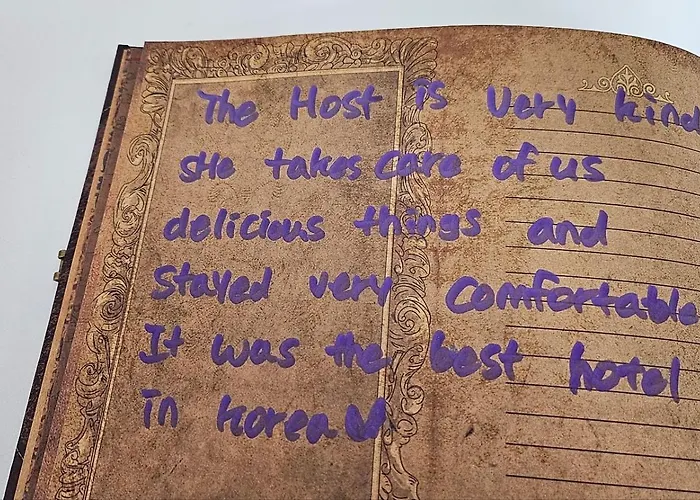 The Host is very kind
sHe takes care of us
delicious things and
stayed very comfortable
It was the best hotel
in korea